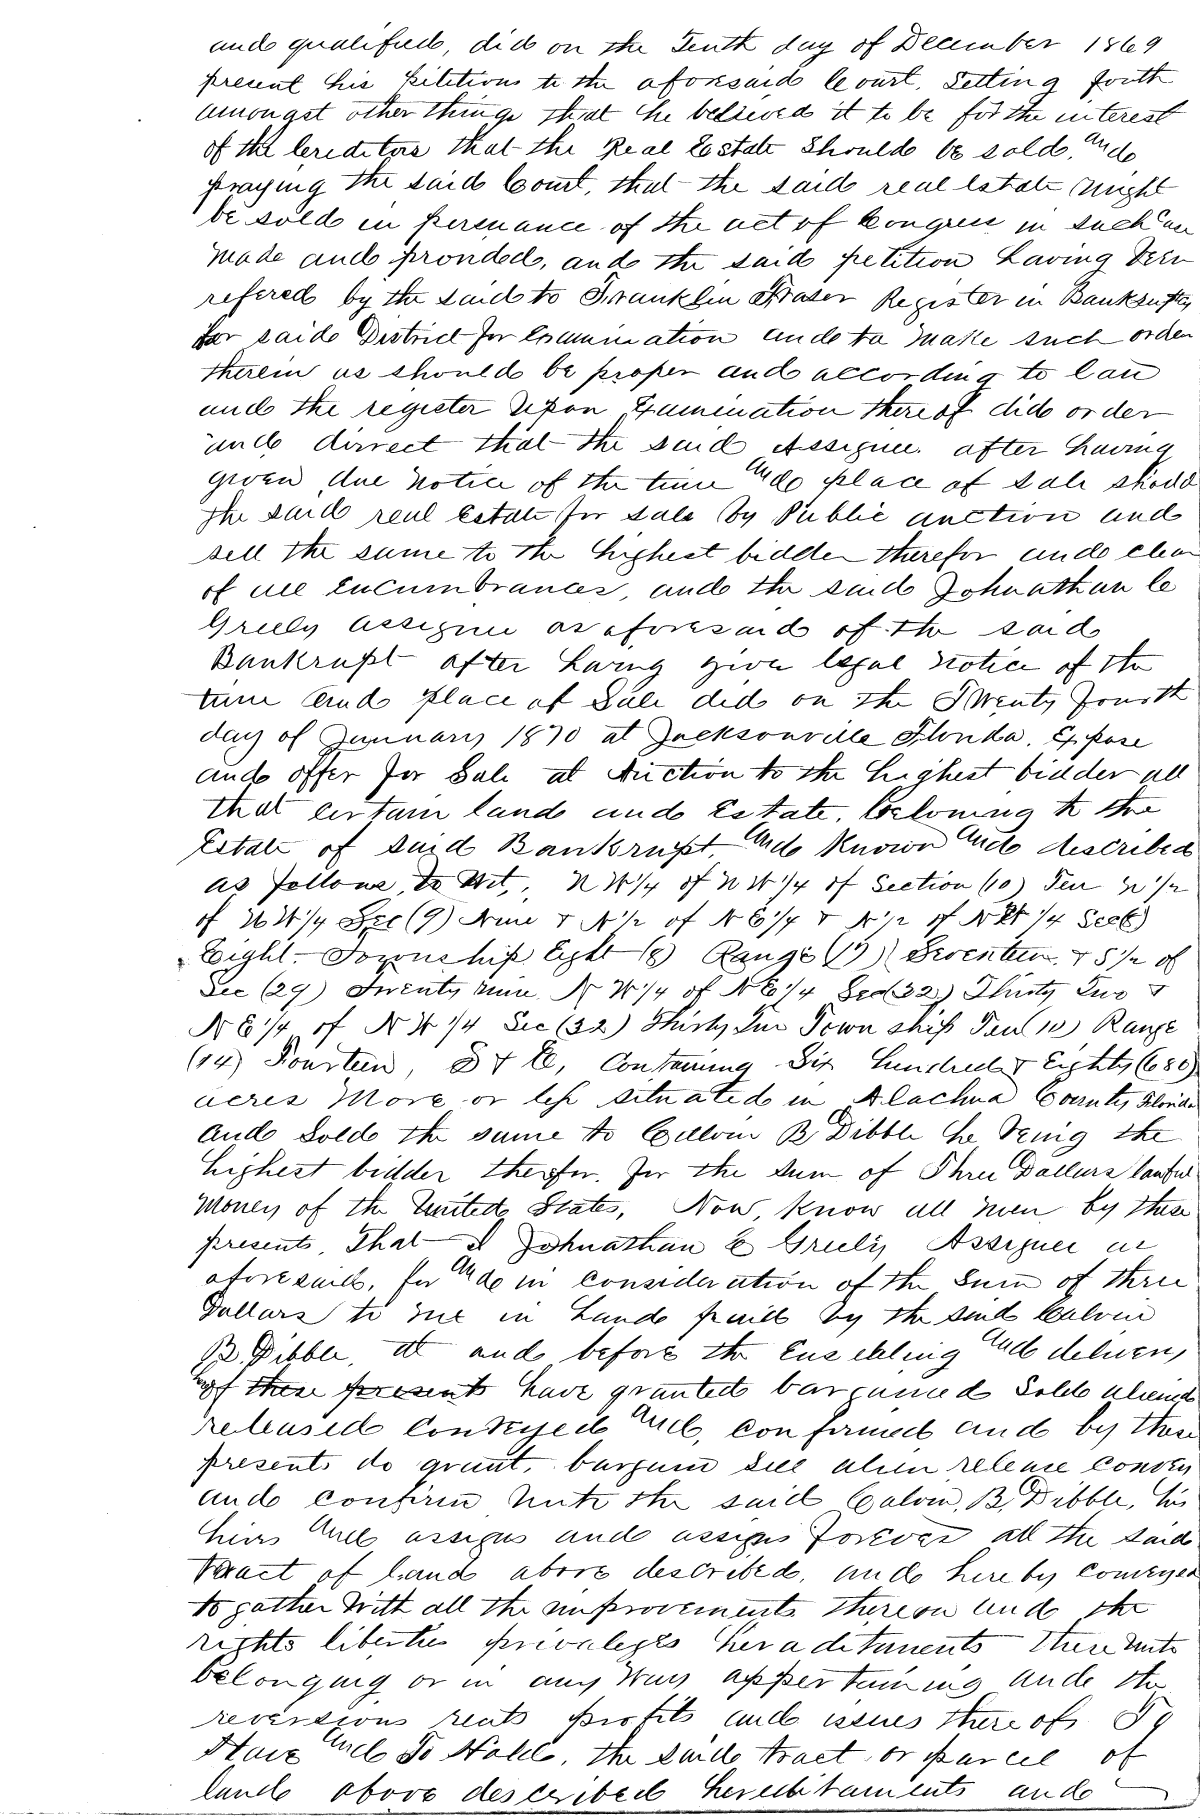 and qualified, did on the Tenth day of December 1869
present his petitions to the aforesaid Court, Setting forth
amongst other things that he believed it to be for the interest
of the Creditors that the Real Estate should be sold, and
praying the said Court, that the said real Estate might
be sold in persuance of the act of Congress in such case
made and provided, and the said petition having been
refered by the said to Franklin Fraser Register in Bankruptcy
for said District for Examination and to make such order
therein as should be proper and according to law
and the register upon Examination thereof did order
and dirrect that the said Assignee after having
given due notice of the time and place of sale should
the said real Estate for sale by Public auction and
sell the same to the highest bidder therefor and clear
of all Encumbrances, and the said Johnathan C
Greely assignee as aforesaid of the said
Bankrupt after having given legal notice of the
time and place of Sale did on the Twenty fourth
day of January 1870 at Jacksonville Florida, Expose
and offer for Sale at Auction to the highest bidder all
that certain land and Estate, beloning to the
Estate of said Bankrupt, and known and described
as follows, to Wit, N W 1/4 of N W 1/4 of Section (10) Ten N 1/2
of N W 1/4 Sec (9) Nine & N 1/2 of N E 1/4 & N 1/2 of N W 1/4 Sec (8)
Eight - Township Eight (8) Range (17) Seventeen & S 1/2 of
Sec (29) Twenty nine N W 1/4 of N E 1/4 Sec (32) Thirty Two &
N E 1/4 of N W 1/4 Sec (32) Thirty Two Town ship Ten (10) Range
(14) Fourteen, S & E, Containing Six hundred & Eighty (680)
acres More or less situated in Alachua County Florida
and Sold the same to Callvin B Dibble he being the
highest bidder therefor, for the sum of Three Dollars lawful
money of the United States, Now, know all men by these
presents, That I Johnathan C Greely Assignee as
aforesaid, for and in consideration of the sum of three
Dollars to me in hand paid by the said Calvin
B. Dibble, at and before the Ensealing and delivery
of these presents have granted bargained Sold aliened
released Conveyed and, confirmed and by these
presents do grant, bargain sell alien release convey
and confirm unto the said Calvin, B, Dibble, his
heirs and assigns and assigns forever all the said
tract of land above described, and hereby conveyed
to gather with all the improvements thereon and the
rights liberties privaleges heraditaments there unto
belonging or in any way appertaining and the
reversions rents profits and issues there of, To
Have and To Hold, the said tract or parcel of
land above described hereditaments and